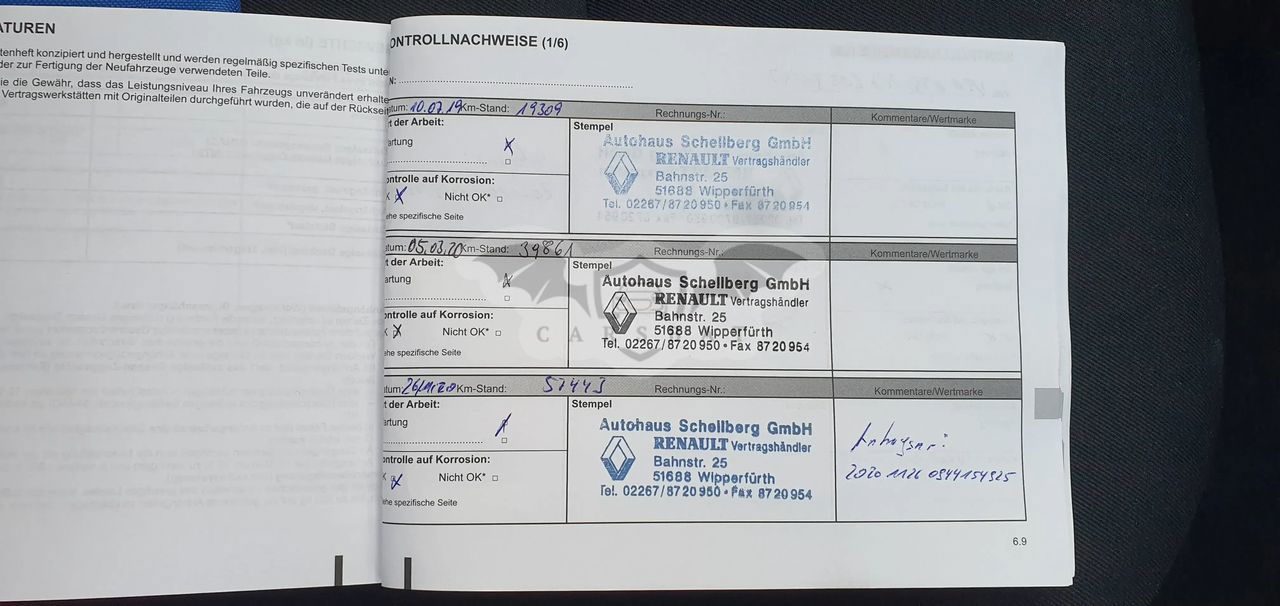 ATUREN
tenheft konzipiert und hergestellt und werden regelmäßig spezifischen Tests unte
der zur Fertigung der Neufahrzeuge verwendeten Teile.
ie die Gewähr, dass das Leistungsniveau Ihres Fahrzeugs unverändert erhalte
Vertragswerkstätten mit Originalteilen durchgeführt wurden, die auf der Rückseit
ONTROLLNACHWEISE (1/6)
N:
tum: 10.07.19 Km-Stand: 19309 Rechnungs-Nr.: Kommentare/Wertmarke
t der Arbeit:
artung X
Stempel
Autohaus Schellberg GmbH
RENAULT Vertragshändler
Bahnstr. 25
51688 Wipperfürth
Tel. 02267/8720950 • Fax 8720954
ontrolle auf Korrosion:
K X Nicht OK*
ehe spezifische Seite
tum: 05.03.20 Km-Stand: 39861 Rechnungs-Nr.: Kommentare/Wertmarke
t der Arbeit:
artung X
Stempel
Autohaus Schellberg GmbH
RENAULT Vertragshändler
Bahnstr. 25
51688 Wipperfürth
Tel. 02267/8720950 • Fax 8720954
ontrolle auf Korrosion:
K X Nicht OK*
ehe spezifische Seite
tum 26/11/20 Km-Stand: 57443 Rechnungs-Nr.: Kommentare/Wertmarke
t der Arbeit:
artung
Stempel
Autohaus Schellberg GmbH
RENAULT Vertragshändler
Bahnstr. 25
51688 Wipperfürth
Tel. 02267/8720950 • Fax 8720954
ontrolle auf Korrosion:
K X Nicht OK*
ehe spezifische Seite
2020 1126 0944154925
6.9